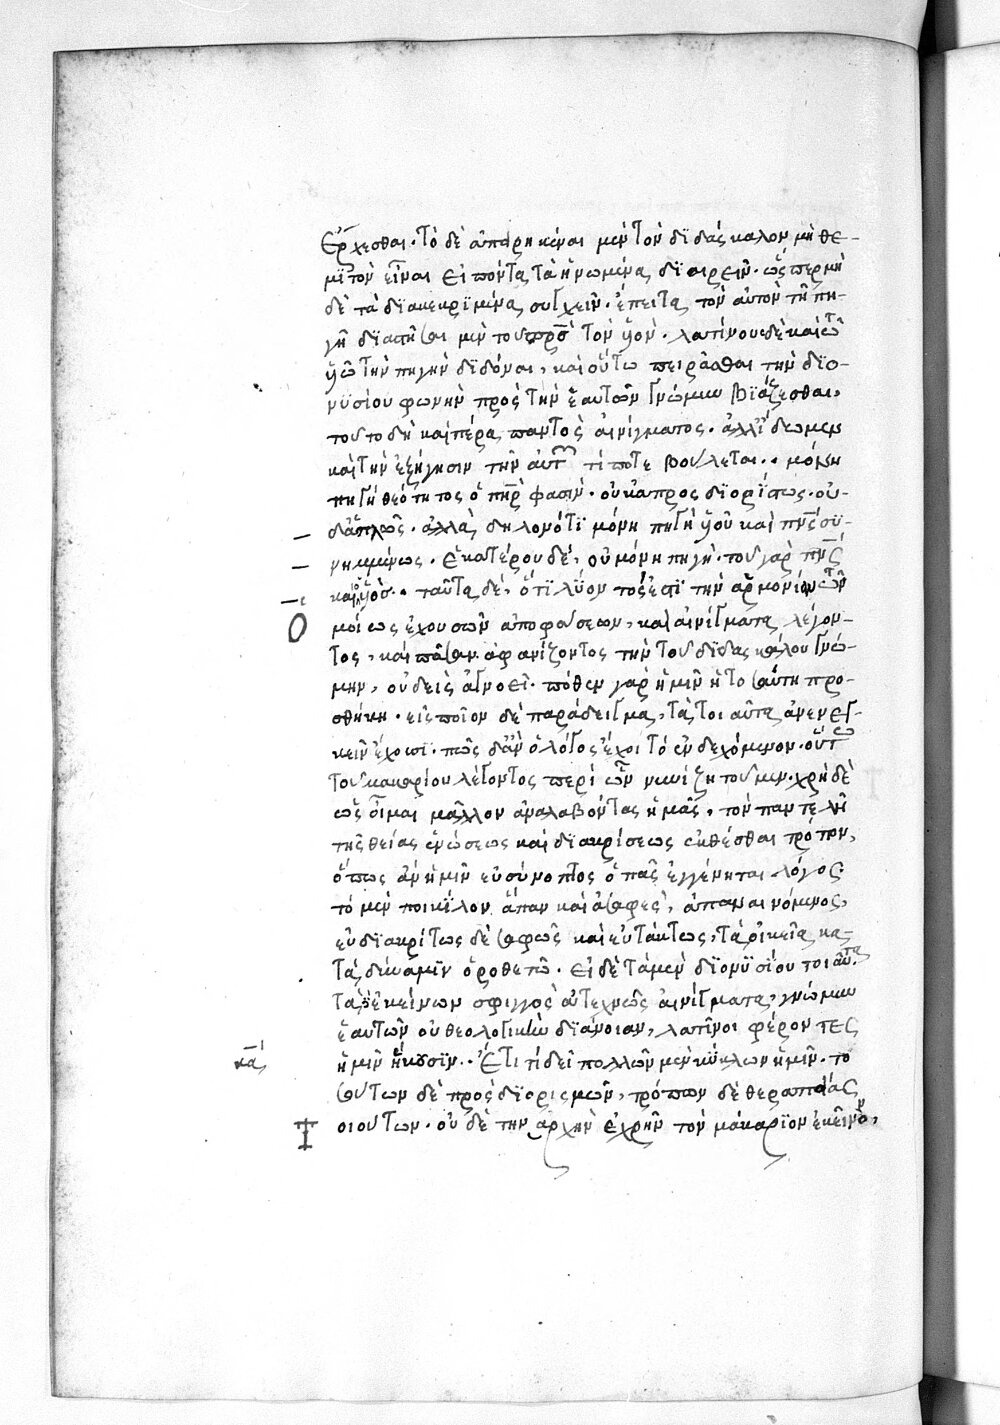 ἔρχεσθαι· τὸ δὲ ἀπειρηκέναι μὲν τὸν διδάσκαλον μὴ θε-
μιτὸν εἶναι εἰπόντα τὰ ἡνωμένα διαιρεῖν· ὥσπερ μὴ
δὲ τὰ διακεκριμένα συγχεῖν· ἔπειτα τὸν αὐτὸν τῇ πη-
γῇ μὲν τοῦ πρς τὸν υἱόν· λατίνους δὲ καὶ τῶ
υἱῶ τὴν πηγὴν διδόναι, καὶ οὕτω πειρᾶσθαι τὴν διο-
νυσίου φωνὴν πρὸς τὴν ἑαυτῶν γνώμην βιάζεσθαι,
τοῦτο δὴ καὶ πέρα παντὸς αἰνίγματος· ἀλλ' ἴδωμεν
καὶ τὴν ἐξήγησιν τὴν αὐτῶν τί ποτε βούλεται·· μόνη
πηγὴ θεότητος ὁ πηρ φασίν· οὐκ ἀπροσδιορίστως· οὐ-
δ' ἁπλῶς· ἀλλὰ δηλονότι μόνη πηγὴ υἱοῦ καὶ πνς συ-
νημμένως· ἑκατέρου δὲ, οὐ μόνη πηγή· τοῦ γὰρ πνς
καὶ ὁ υἱός·· ταῦτα δὲ, ὅτι λύοντός ἐστι τὴν ἁρμονίαν τῶν
ὁμοίως ἐχουσῶν ἀποφάσεων, καὶ αἰνίγματα λέγον-
τος, καὶ πᾶσαν ἀφανίζοντος τὴν τοῦ διδασκάλου γνώ-
μην, οὐδεὶς ἀγνοεῖ· πόθεν γὰρ ἡμῖν ἡ τοσαύτη προ-
σθήκη· εἰς ποῖον δὲ παράδειγμα, ταῦτα ἀνενεγ-
κεῖν ἔχοι· πῶς δ' ἂν ὁ λόγος ἔχοι τὸ ἐνδεχόμενον· οὕτω
τοῦ μακαρίου λέγοντος περὶ ὧν νυνὶ ζητοῦμεν· χρὴ δὲ
ὡς οἶμαι μᾶλλον ἀναλαβόντας ἡμᾶς, τὸν παντελῆ
τῆς θείας ἑνώσεως καὶ διακρίσεως ἐκθέσθαι τρόπον,
ὅπως ἂν ἡμῖν εὐσύνοπτος ὁ πᾶς ἐγγένηται λόγος·
τὸ μὲν ποικίλον ἅπαν καὶ ἀσαφὲς, ἀπαναινόμενος,
εὐδιακρίτως δὲ σαφῶς καὶ εὐτάκτως, τὰ οἰκεῖα κα-
τὰ δύναμιν ὁροθετῶ· εἰ δὲ τὰ μὲν διονυσίου τοιαῦτα
τὰ δ' ἐκείνων σφιγγὸς ἀτεχνῶς αἰνίγματα, γνώμην
ἑαυτῶν οὐ θεολογικὴν διάνοιαν, λατῖνοι φέροντες
ἡμῖν ἥκουσιν·· Ἔτι τί δεῖ πολλῶν μὲν κύκλων ἡμῖν· το
σούτων δὲ προσδιορισμῶν, τρόπων δὲ θεραπείας
οιούτων· οὐδὲ τὴν ἀρχὴν ἐχρῆν τὸν μακάριον ἐκεῖνον,
κα